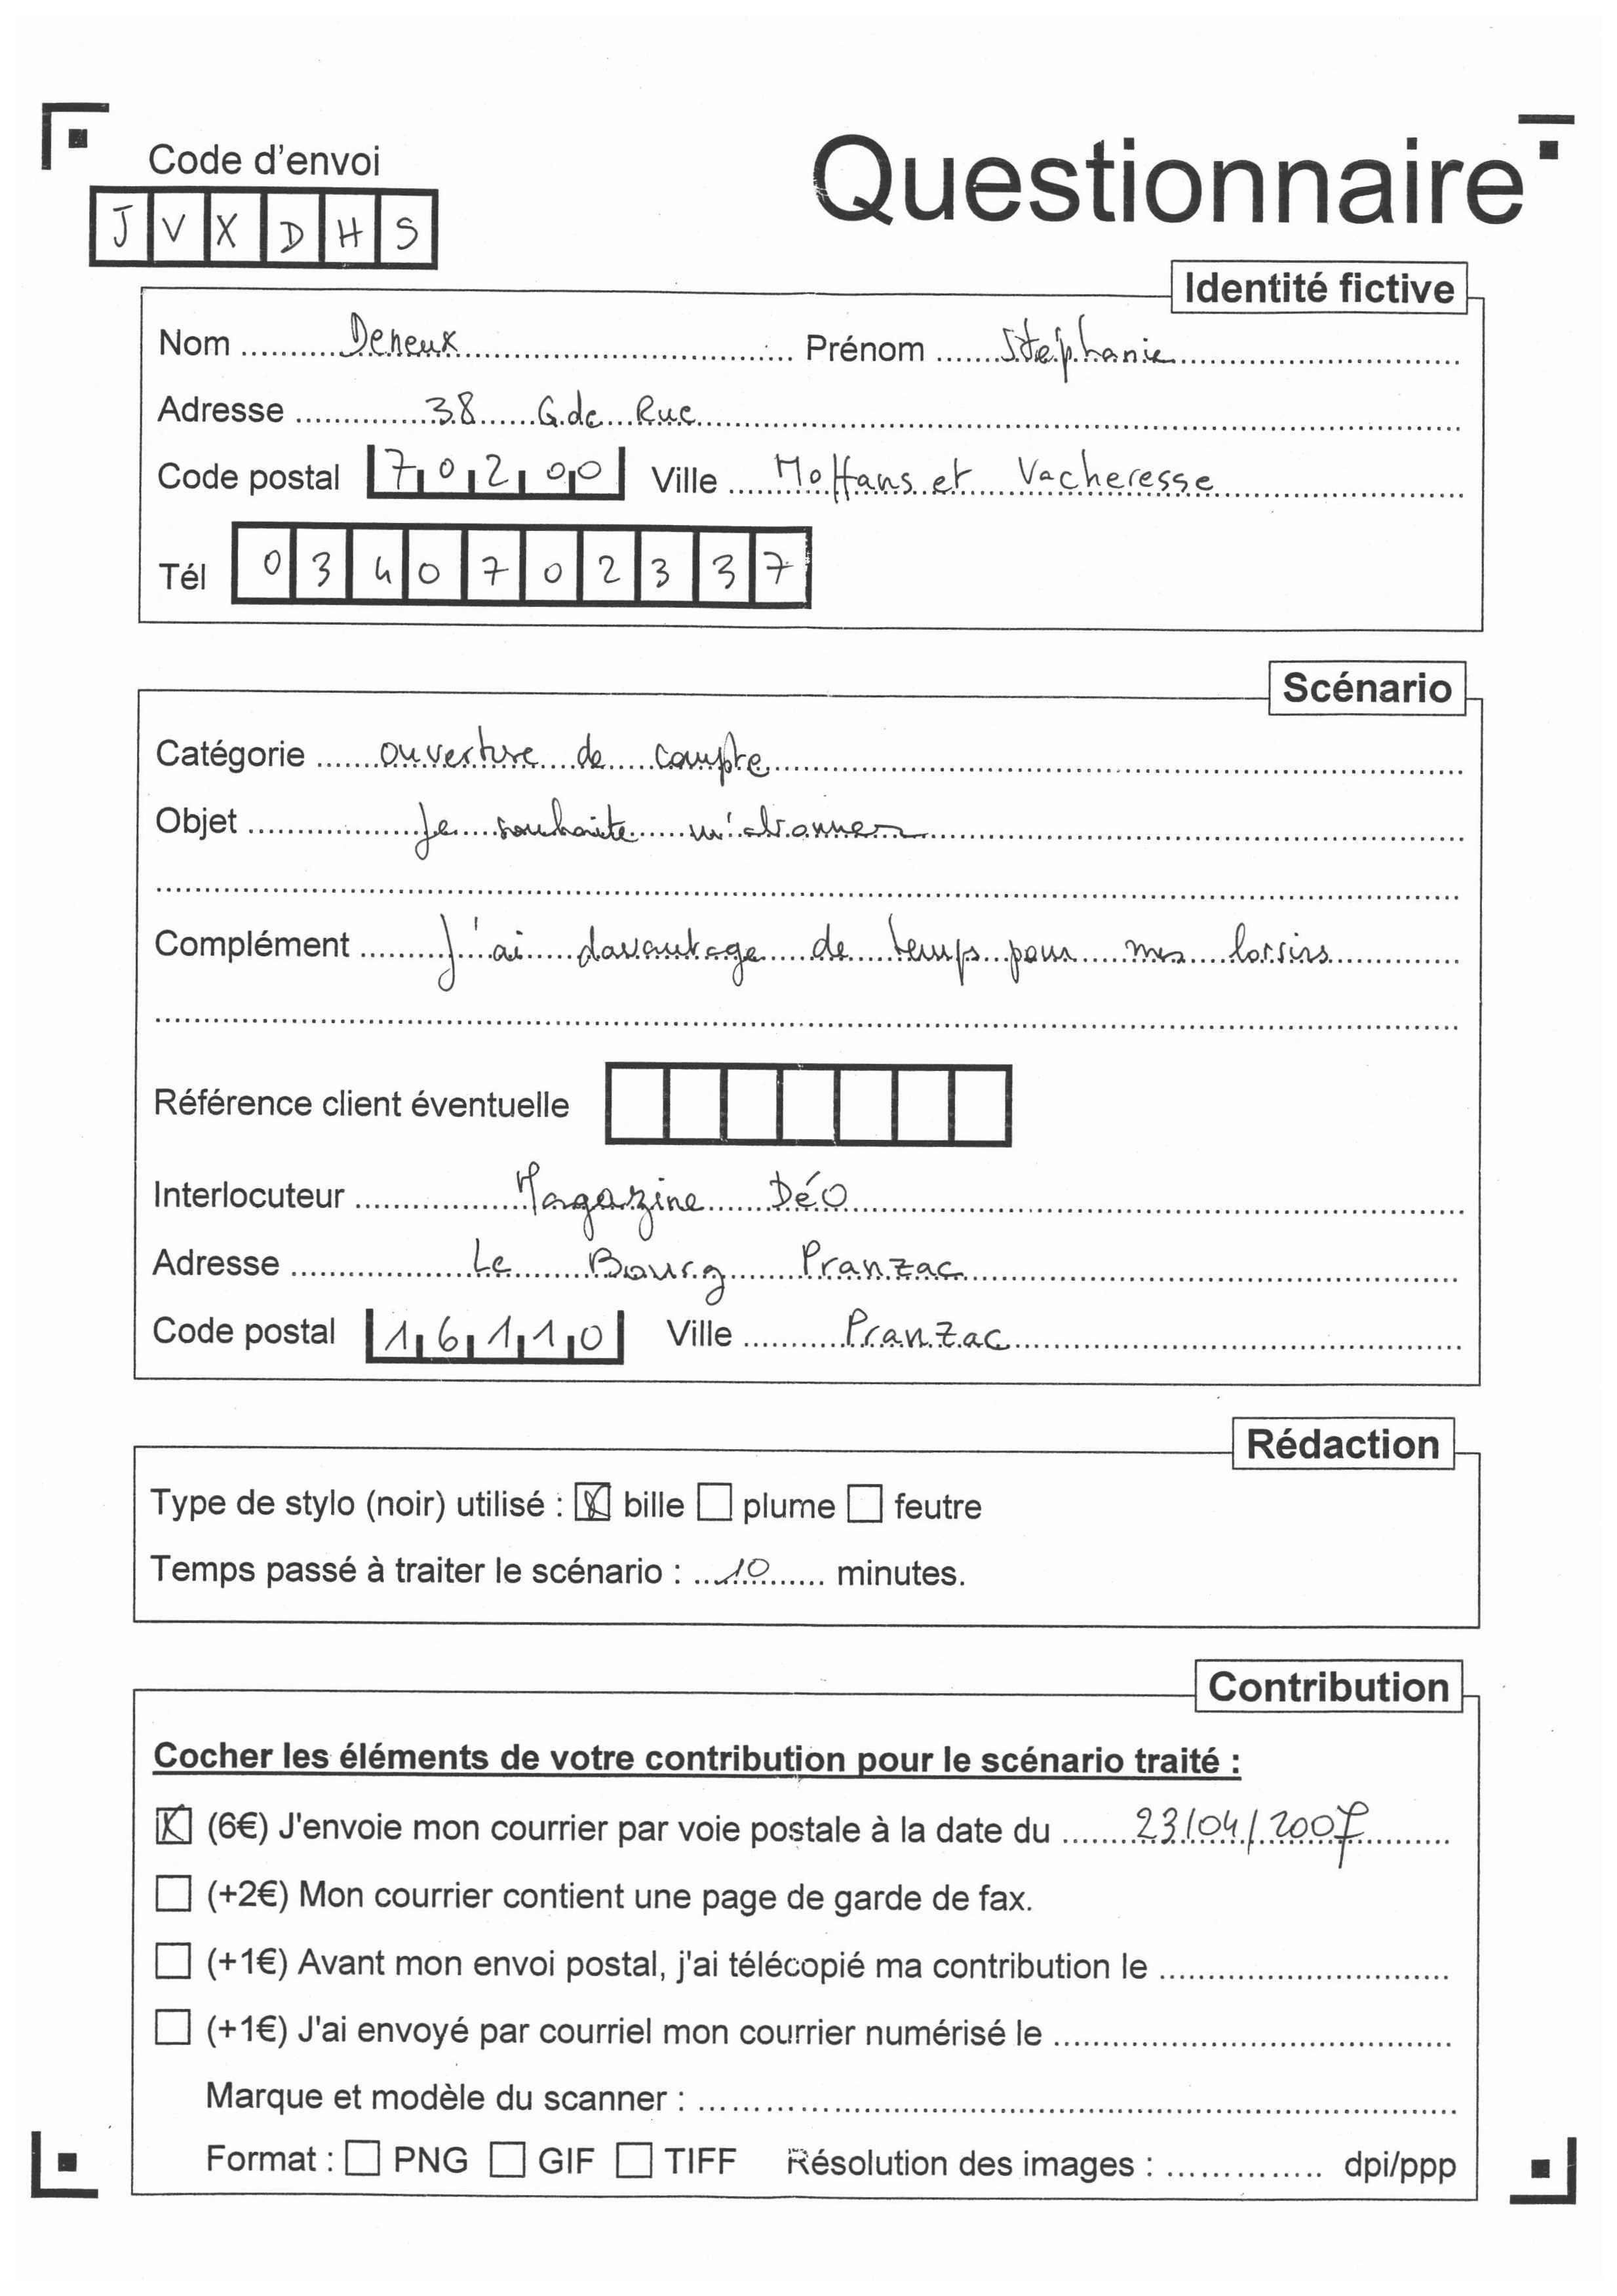 Code d'envoi
Questionnaire
J V X D H S
Identité fictive
Nom Deneux Prénom Stéphanie
Adresse 38 Gde Rue
Code postal 70200 Ville Moffans et Vacheresse
Tél 0340702337
Scénario
Catégorie ouverture de compte
Objet Je souhaite m'abonner
Complément J'ai davantage de temps pour mes loisirs
Référence client éventuelle
Interlocuteur Magazine DéO
Adresse Le Bourg Pranzac
Code postal 16110 Ville Pranzac
Rédaction
Type de stylo (noir) utilisé : bille plume feutre
Temps passé à traiter le scénario : 10 minutes.
Contribution
Cocher les éléments de votre contribution pour le scénario traité :
(6€) J'envoie mon courrier par voie postale à la date du 23/04/2007
(+2€) Mon courrier contient une page de garde de fax.
(+1€) Avant mon envoi postal, j'ai télécopié ma contribution le
(+1€) J'ai envoyé par courriel mon courrier numérisé le
Marque et modèle du scanner :
Format : PNG GIF TIFF Résolution des images : dpi/ppp